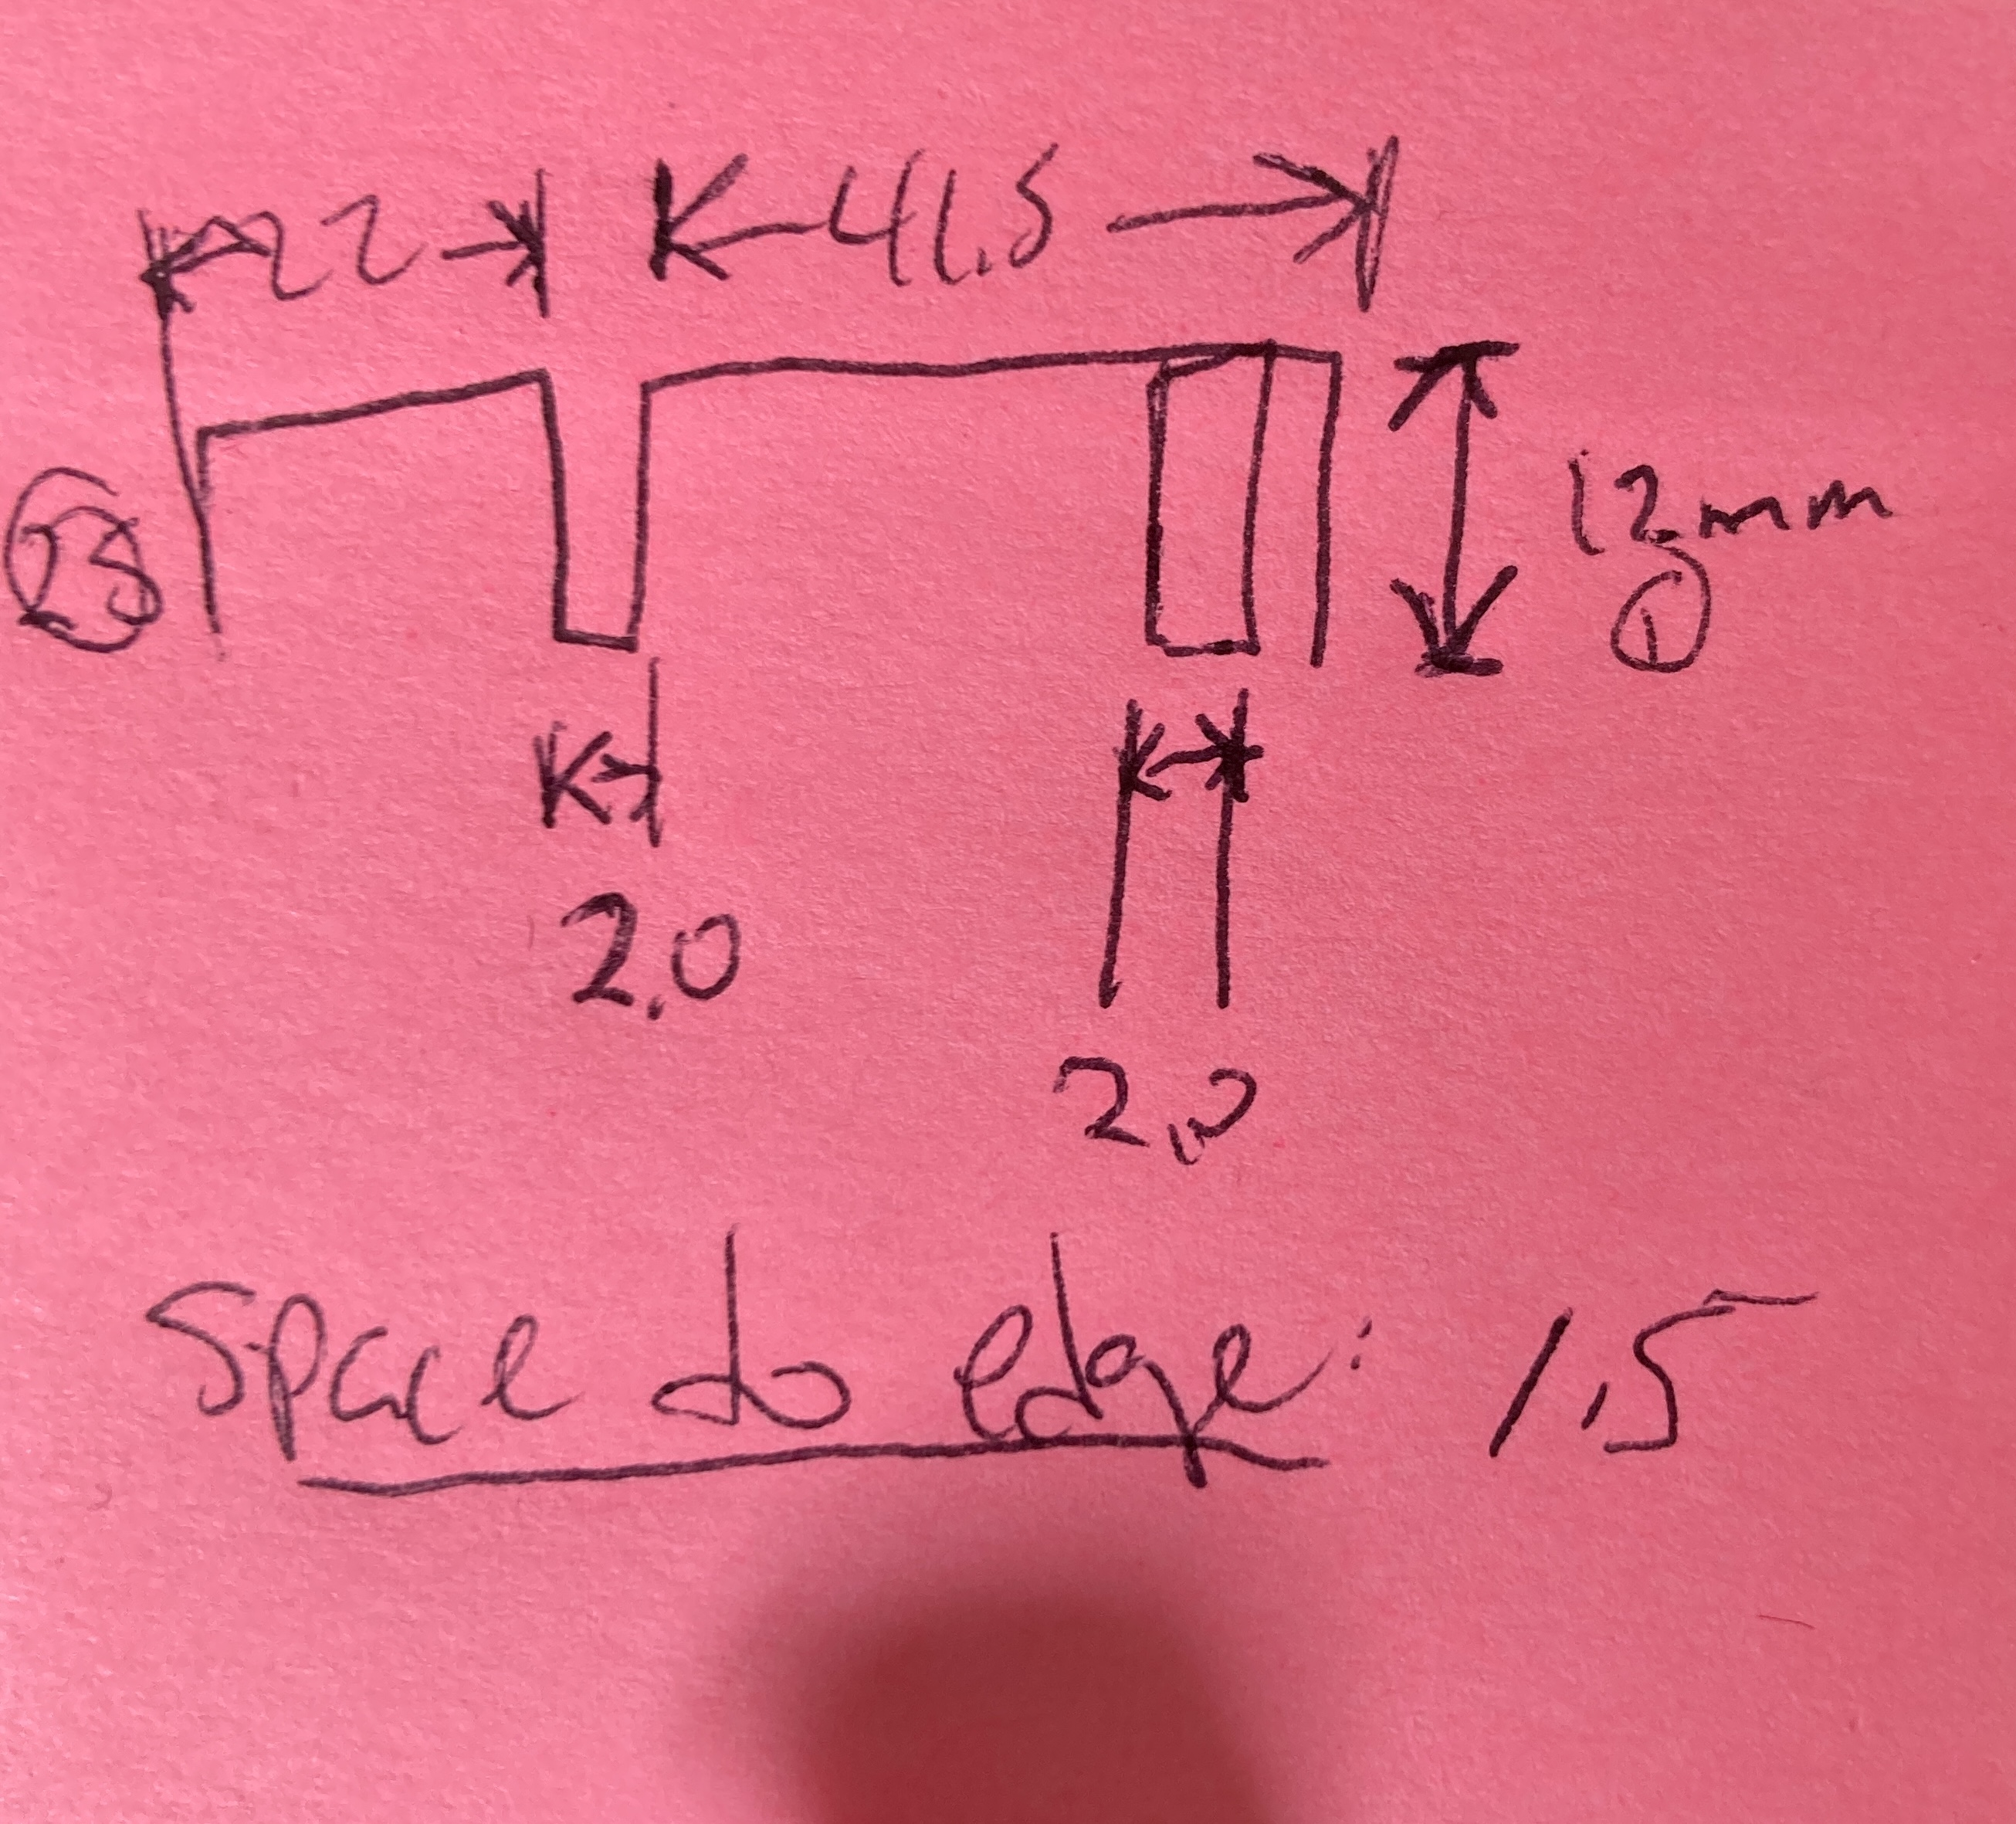 22 41.5
12mm
1
2.0
2.0
Space to edge: 1.5